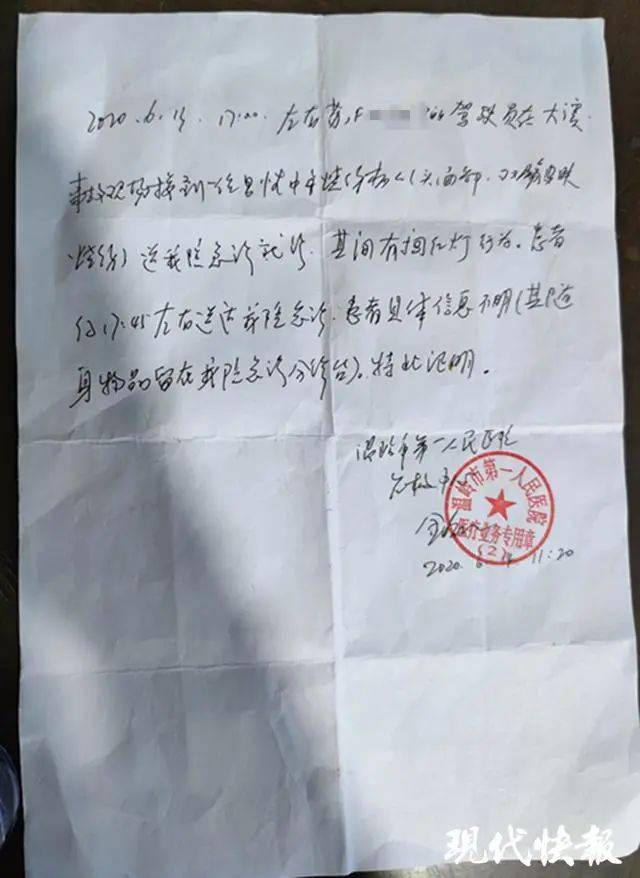 2020.6.13. 17:00 左右苏F 的驾驶员在大溪
事故现场接到一位
烧伤）送我院急诊就诊. 其间有闯红灯行为. 患者
约17:45左右送达我院急诊. 患者具体信息不明（其随
身物品留在我院急诊分诊台）. 特此证明.
温岭市第一人民医院
急救中心
温岭市第一人民医院
医疗业务专用章
（2）
2020. 6 11:20
现代快报